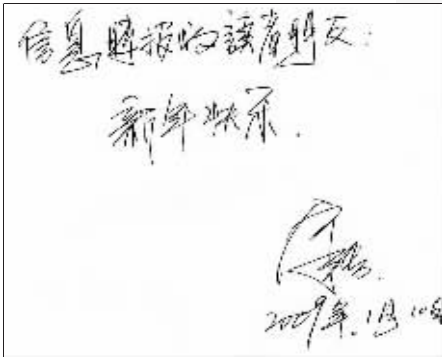 信息時报的讀者朋友:
新年快乐.
2009年.1月10日